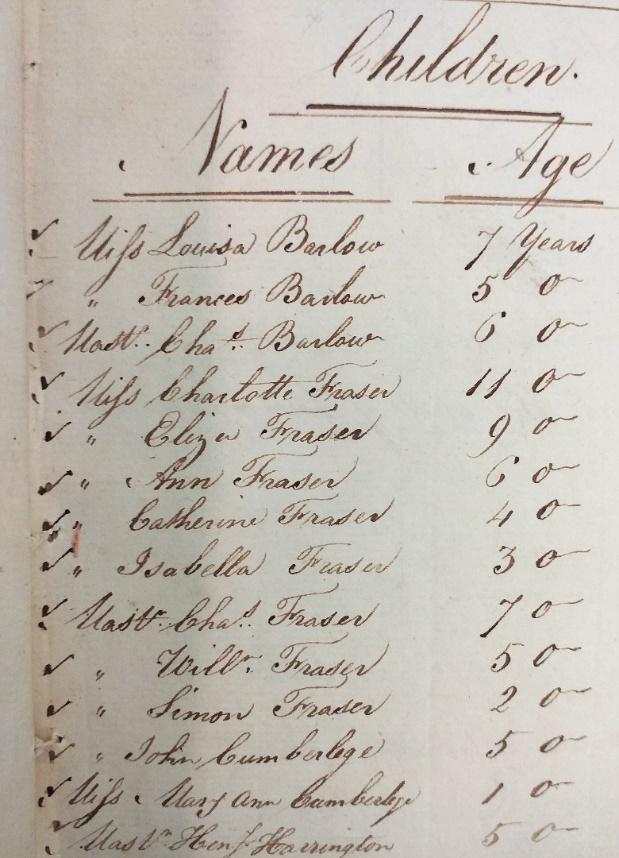 Children.
Names Age
Miss Louisa Barlow 7 Years
" Frances Barlow 5 o
Mastr. Chas. Barlow 6 o
Miss Charlotte Fraser 11 o
" Eliza Fraser 9 o
" Ann Fraser 6 o
" Catherine Fraser 4 o
" Isabella Fraser 3 o
Mastr. Chas. Fraser 7 o
" Willm. Fraser 5 o
" Simon Fraser 2 o
" John Cumberlege 5 o
Miss Mary Ann Cumberlege 1 o
Mastr Heny Harrington 5 o